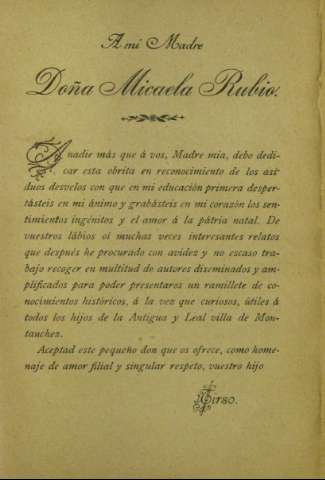 A mi Madre
Doña Micaela Rubio.
A nadie más que á vos, Madre mia, debo dedi-
car esta obrita en reconocimiento de los asi-
duos desvelos con que en mi educación primera desper-
tásteis en mi ánimo y grabásteis en mi corazón los sen-
timientos ingénitos y el amor á la pátria natal. De
vuestros lábios oi muchas veces interesantes relatos
que después he procurado con avidez y no escaso tra-
bajo recoger en multitud de autores diseminados y am-
plificados para poder presentaros un ramillete de co-
nocimientos históricos, á la vez que curiosos, útiles á
todos los hijos de la Antigua y Leal villa de Mon-
tanchez.
Aceptad este pequeño don que os ofrece, como home-
naje de amor filial y singular respeto, vuestro hijo
Tirso.